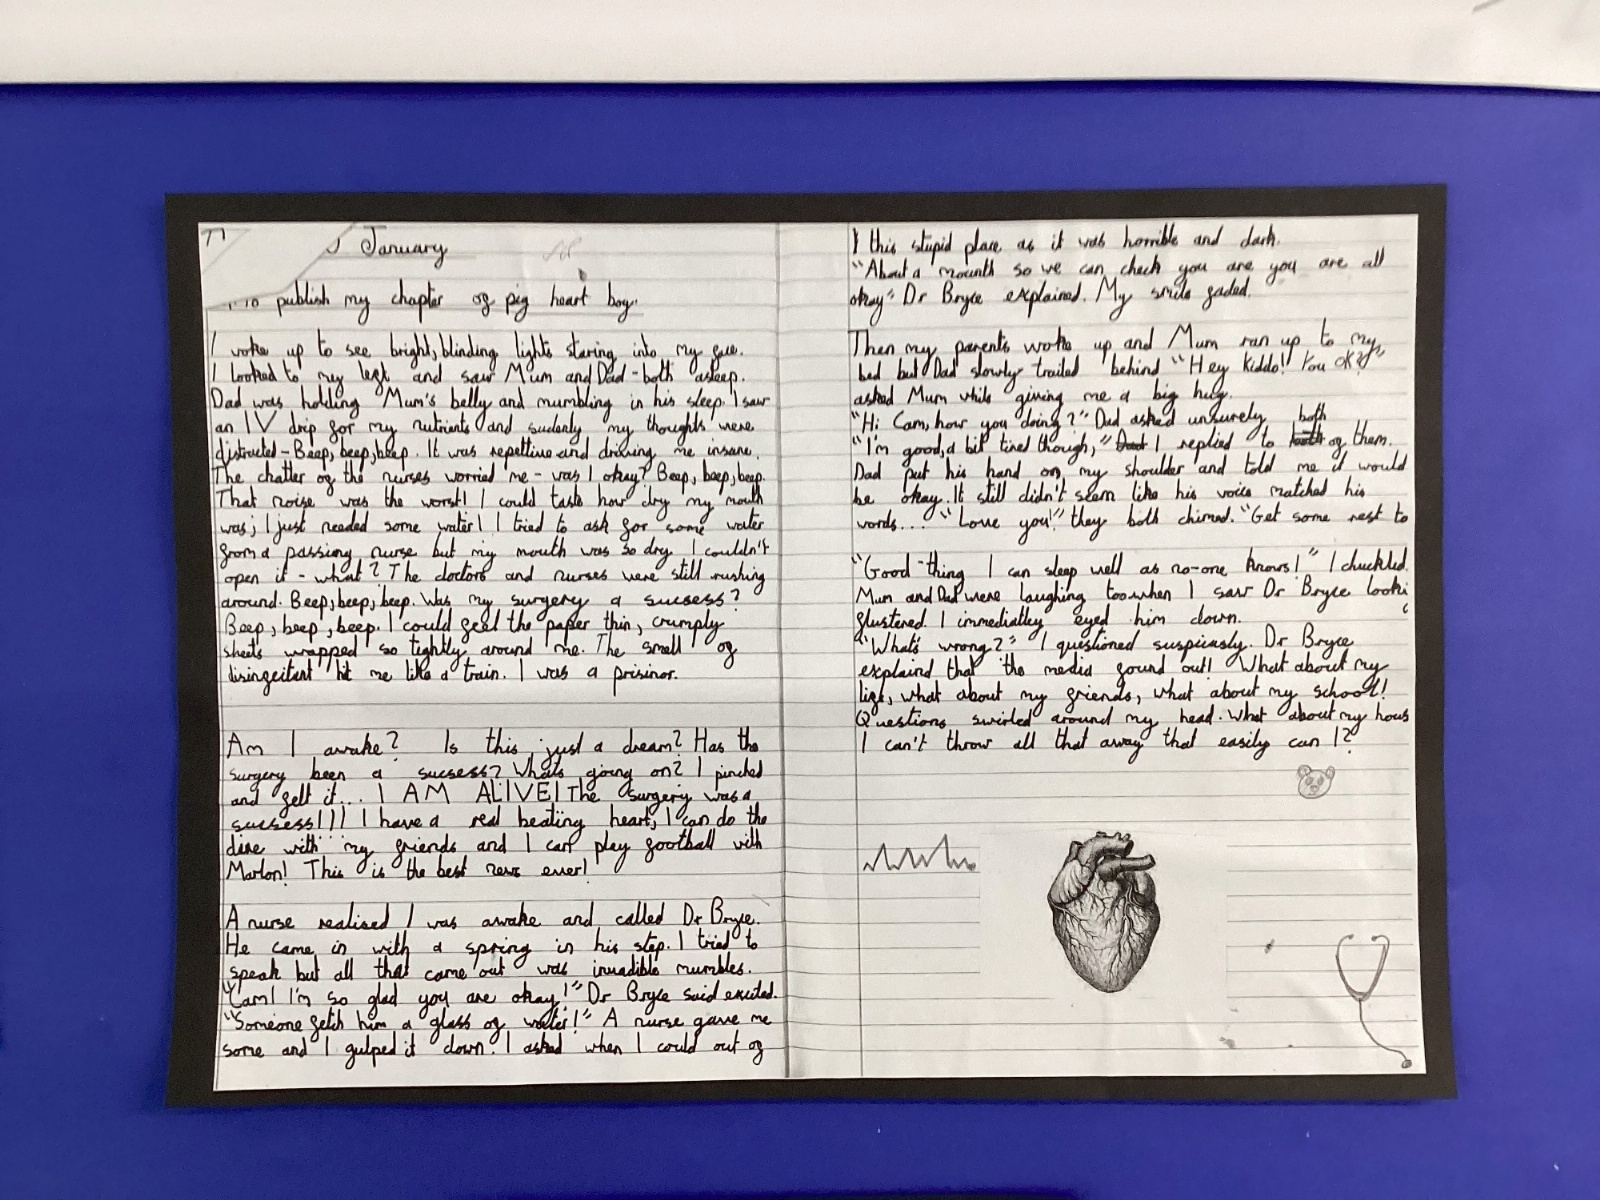 January
to publish my chapter of pig heart boy.
I woke up to see bright, blinding lights staring into my face.
I looked to my left and saw Mum and Dad - both asleep.
Dad was holding Mum's belly and mumbling in his sleep. I saw
an IV drip for my nutrients and sudenly my thoughts were
distructed - Beep, beep, beep. It was repettive and driving me insane.
The chatter of the nurses worried me - was I okay? Beep, beep, beep.
That noise was the worst! I could taste how dry my mouth
was; I just needed some water! I tried to ask for some water
from a passing nurse but my mouth was so dry I couldn't
open it - what? The doctors and nurses were still rushing
around. Beep, beep, beep. Was my surgery a sucsess?
Beep, beep, beep. I could feel the paper thin, crumply
sheets wrapped so tightly around me. The smell of
disinfeitant hit me like a train. I was a prisinor.
Am I awake? Is this just a dream? Has the
surgery been a sucsess? Whats going on? I pinched
and felt it... I AM ALIVE! The surgery was a
sucsess!!! I have a real beating heart, I can do the
dive with my friends and I can play football with
Marlon! This is the best news ever!
A nurse realised I was awake and called Dr Bryce.
He came in with a spring in his step. I tried to
speak but all that came out was inuadible mumbles.
"Cam! I'm so glad you are okay!" Dr Bryce said excited.
"Someone fetch him a glass of water!" A nurse gave me
some and I gulped it down. I asked when I could out of
this stupid place as it was horrible and dark.
"About a mounth so we can check you are you are all
okay" Dr Bryce explained. My smile faded.
Then my parents woke up and Mum ran up to my
bed but Dad slowly trailed behind "Hey kiddo! You ok?"
asked Mum while giving me a big hug.
"Hi Cam, how you doing?" Dad asked unsurely
"I'm good, a bit tired though," I replied to both of them.
Dad put his hand on my shoulder and told me it would
be okay. It still didn't seem like his voice matched his
words.... "Love you!" they both chimed. "Get some rest to
"Good thing I can sleep well as no-one knows!" I chuckled.
Mum and Dad were laughing too when I saw Dr Bryce looki
flustered. I immediatley eyed him down.
"What's wrong?" I questioned suspiciously. Dr Bryce
explaind that the media found out! What about my
life, what about my friends, what about my school!
Questions swirled around my head. What about my hous
I can't throw all that away that easily can I?